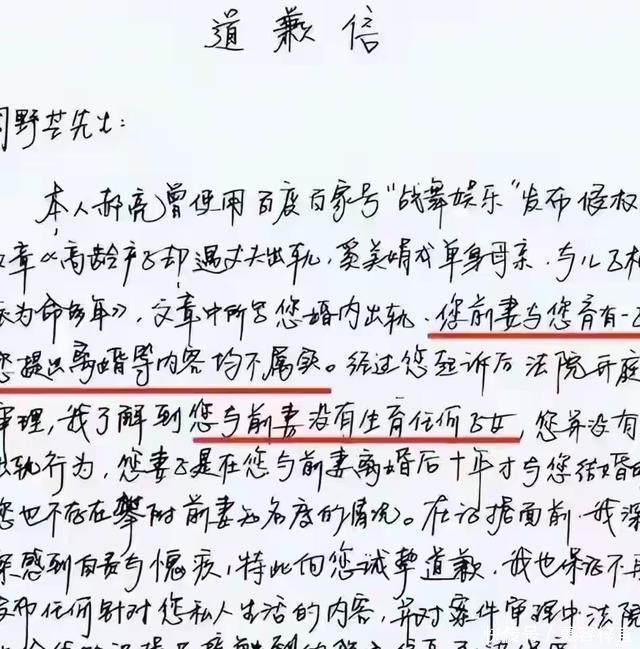 道歉信
周野芒先生:
本人郝亮曾使用百度百家号"战舞娱乐"发布侵权
文章《高龄产子却遇丈夫出轨,奚美娟成单身母亲,与儿子相
依为命多年》,文章中所写您婚内出轨、您前妻与您育有一子
您提出离婚等内容均不属实。经过您起诉后法院开庭
审理,我了解到您与前妻没有生育任何子女,您并没有
出轨行为,您妻子是在您与前妻离婚后十年才与您结婚的
您也不存在攀附前妻知名度的情况。在证据面前,我深
深感到自责与愧疚,特此向您诚挚道歉,我也保证不再
发布任何针对您私人生活的内容,并对案件审理中法院